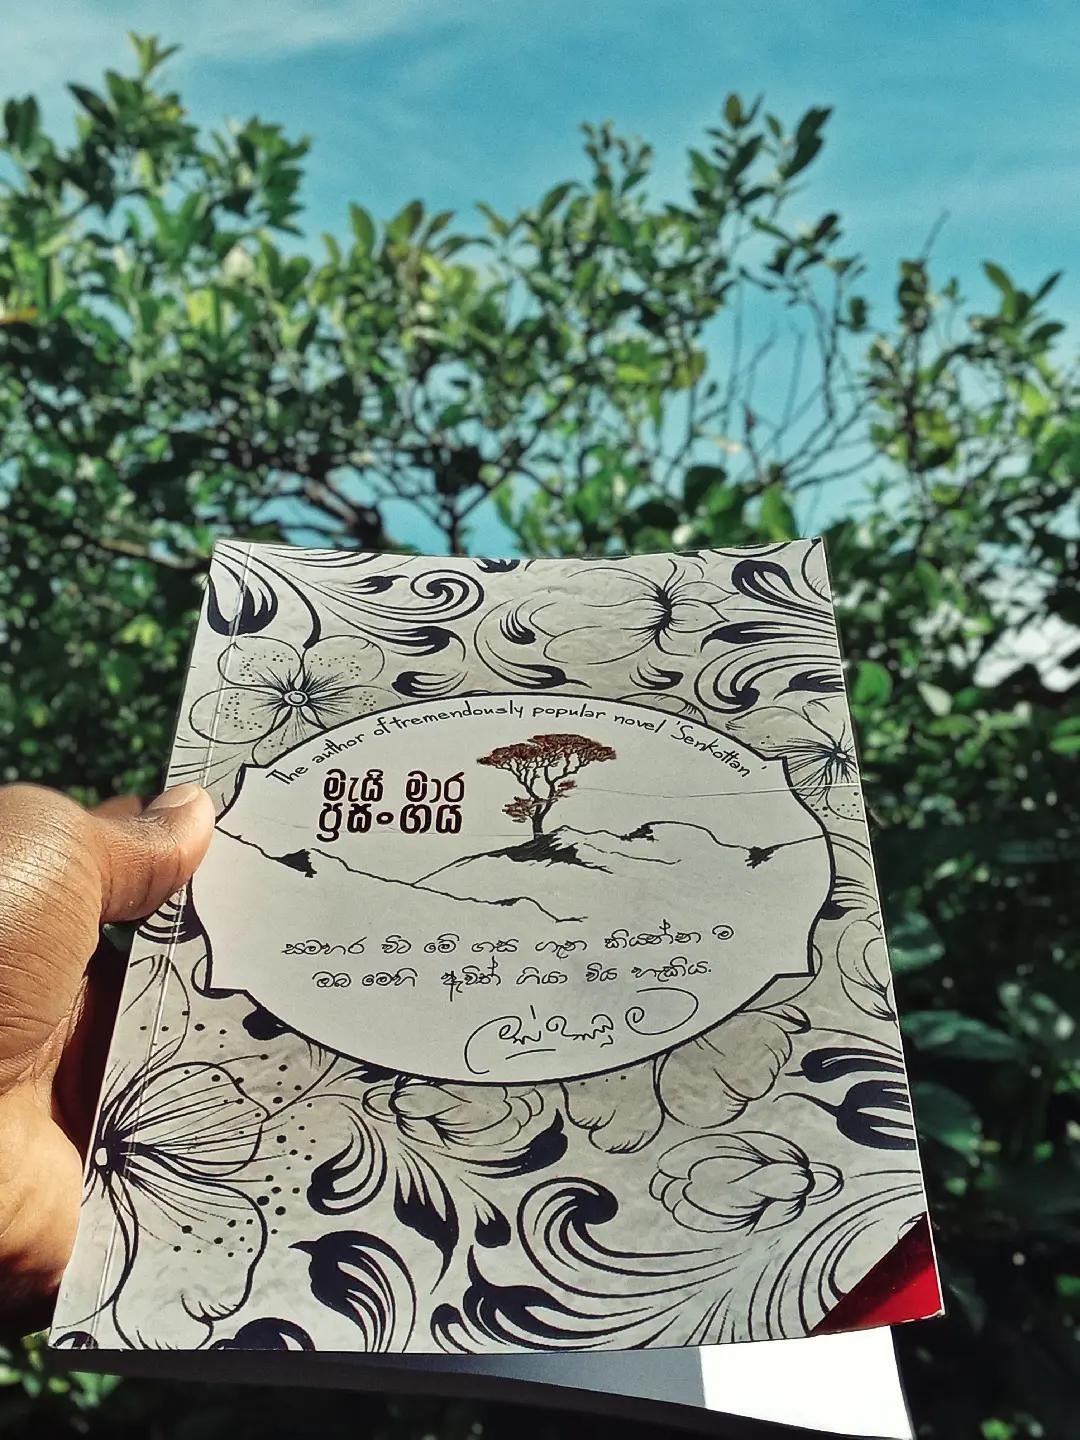 The author of tremendously popular novel 'Senkottan'
මැයි මාර
ප්‍රසංගය
සමහර විට මේ ගස ගැන කියන්න ම
ඔබ මෙහි ඇවිත් ගියා විය හැකිය.